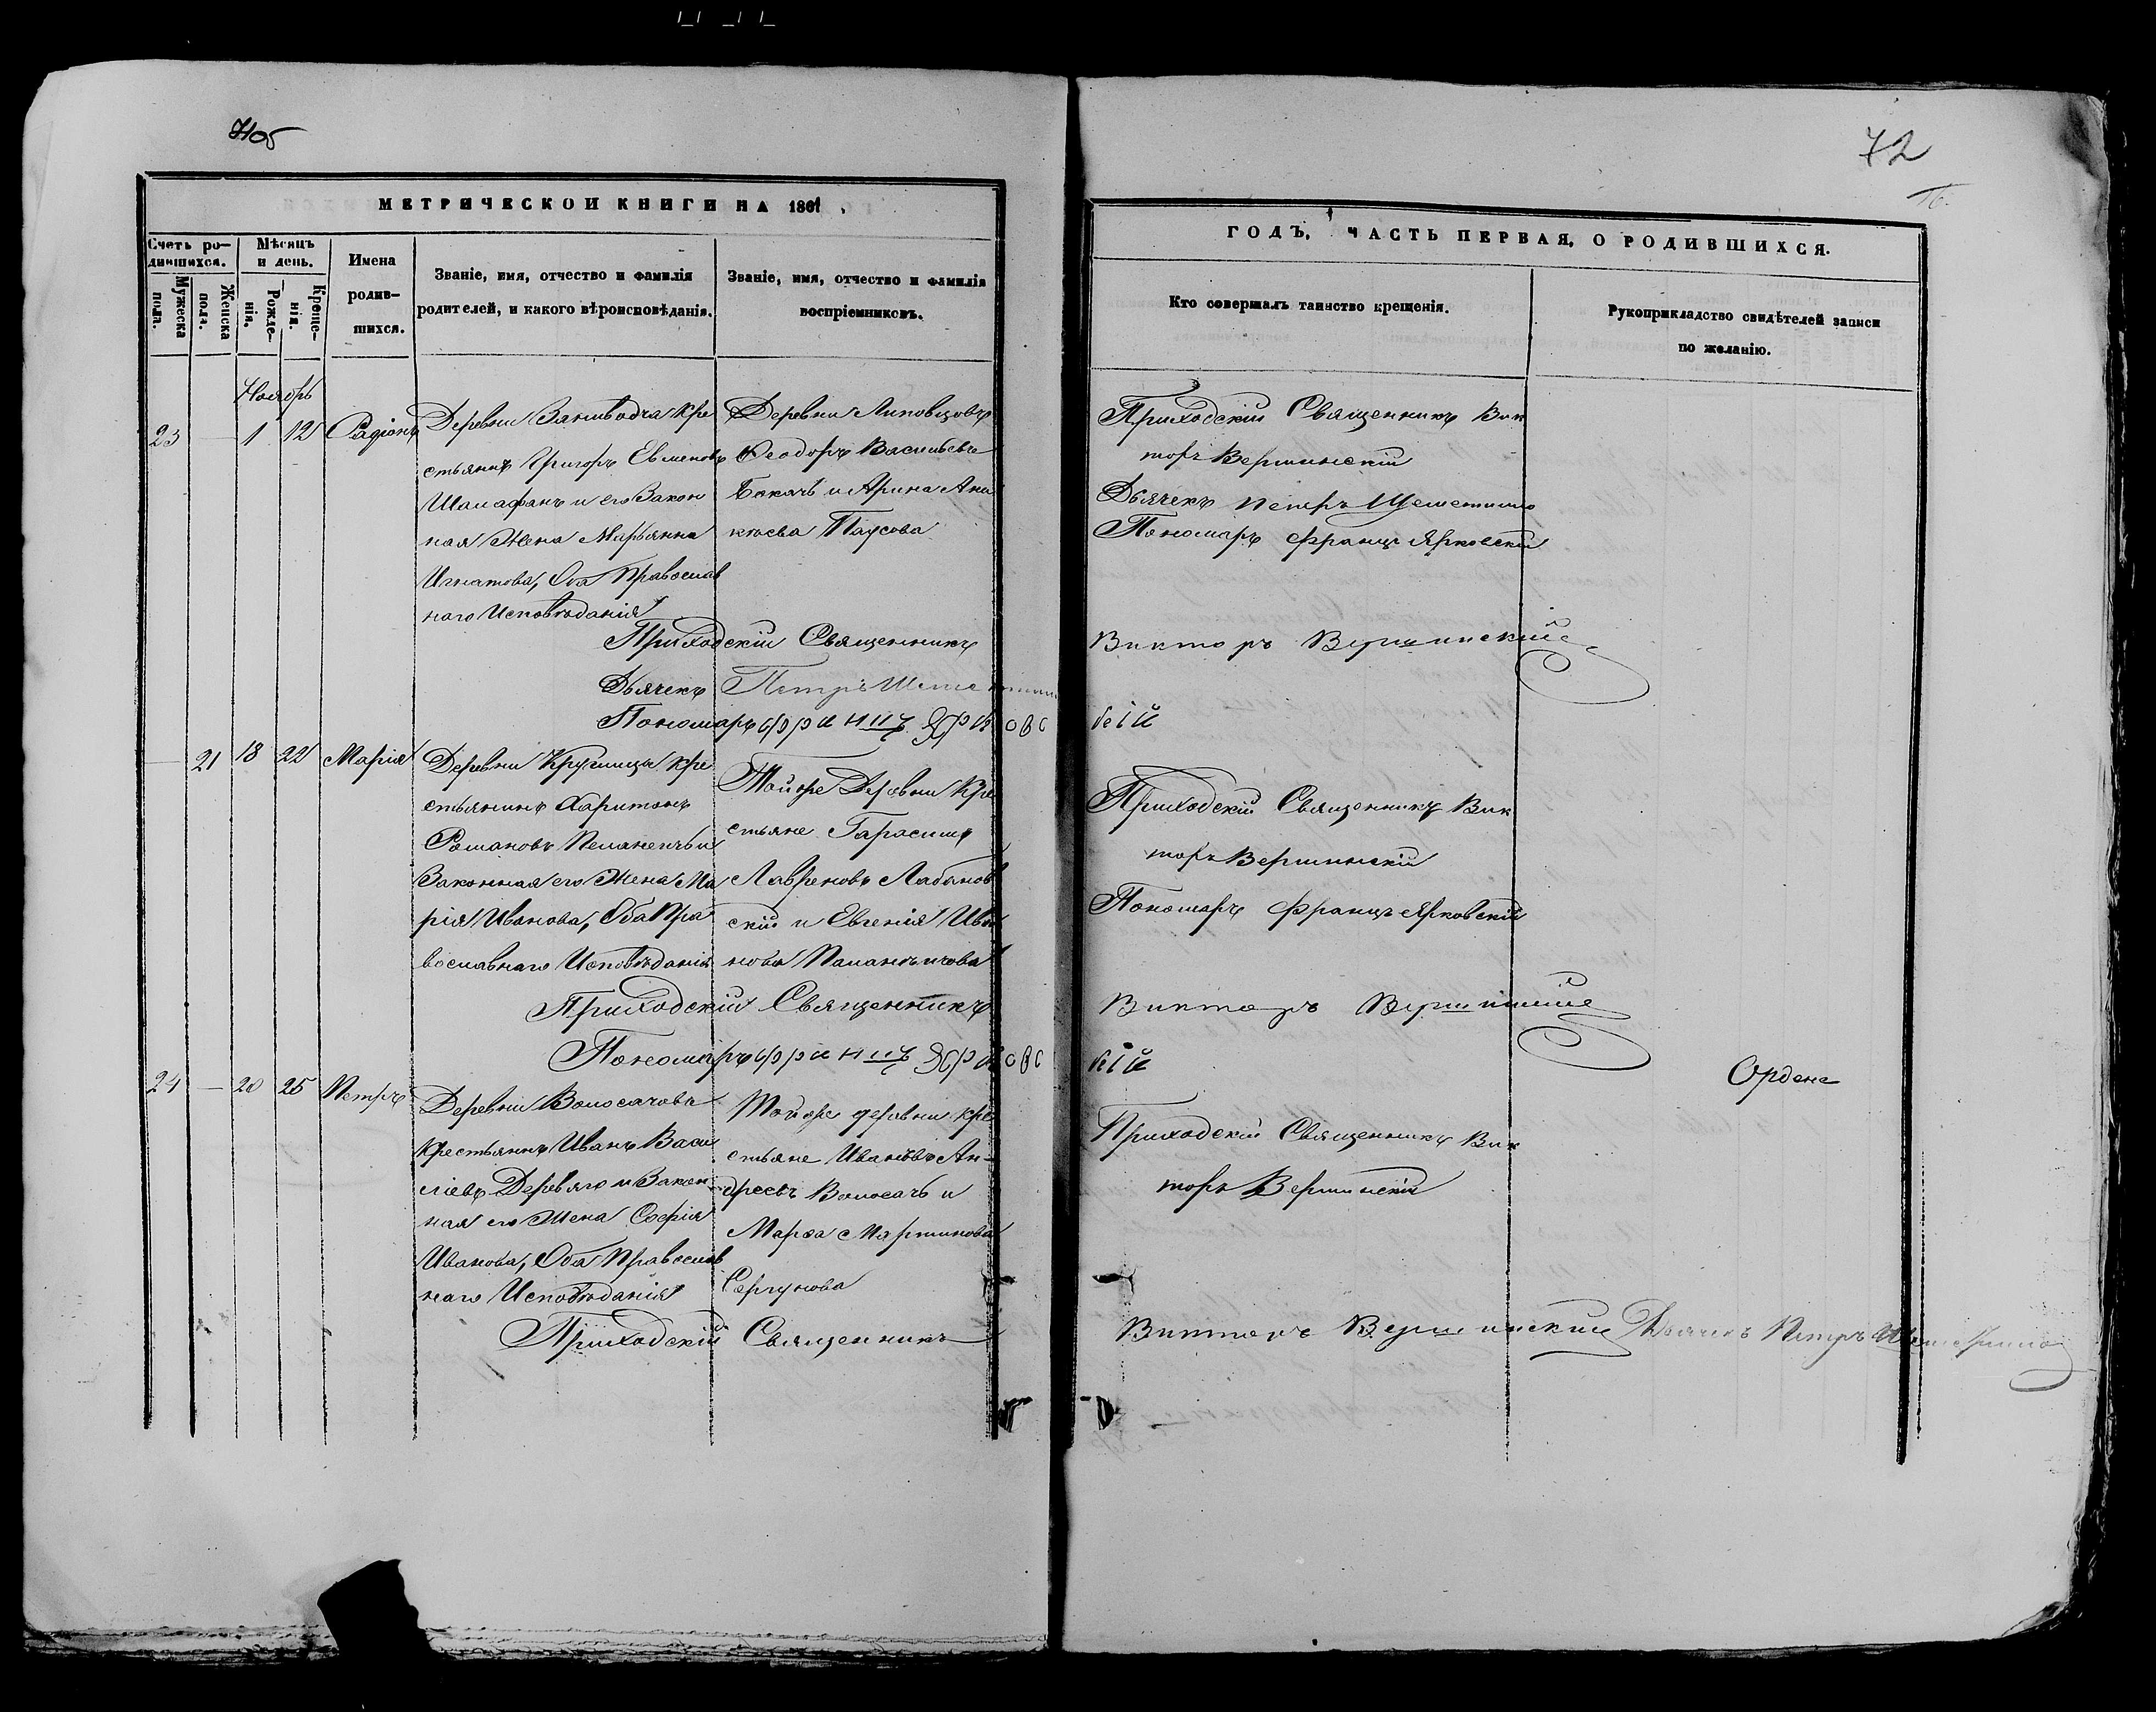 72
МЕТРИЧЕСКОЙ КНИГИ НА 1861
ГОДЪ, ЧАСТЬ ПЕРВАЯ, О РОДИВШИХСЯ.
Счетъ ро-
дившихся.
Мужеска
пола.
Женска
пола.
Мѣсяцъ
и день.
Рожде-
нія.
Креще-
нія.
Имена
родив-
шихся.
Званіе, имя, отчество и фамилія
родителей, и какого вѣроисповѣданія.
Званіе, имя, отчество и фамилія
воспріемниковъ.
Кто совершалъ таинство крещенія.
Рукоприкладство свидѣтелей записи
по желанію.
Ноябрь
23 — 1 12 Радіонъ
Деревни кре
стьянинъ Григоръ Евменовъ
и его Закон
ная Жена Марьянна
Игнатова, Оба Православ
наго Исповѣданія
Деревни Липовцовъ
Ѳеодоръ Васильевъ
и Арина Ана
ньева
Приходскій Священникъ Вик
торъ Вершинскій
Дьячекъ Петръ
Пономаръ Францъ Ярковскій
Приходскій Священникъ Викторъ Вершинскій
Дьячекъ Петръ
Пономаръ Францъ Ярковскій
— 21 18 22 Марія
Деревни Кругицы кре
стьянинъ Харитонъ
Романовъ и
Законная его Жена Ма
рія Иванова, Оба Пра
вославнаго Исповѣданія
Тойже Деревни Кре
стьяне Гарасимъ
Лавреновъ Лабанов
скій и Евгенія Ива
нова
Приходскій Священникъ Вик
торъ Вершинскій
Пономаръ Францъ Ярковскій
Приходскій Священникъ Викторъ Вершинскій
Пономаръ Францъ Ярковскій
24 — 20 25 Петръ
Деревни Волосачовъ
Крестьянинъ Иванъ Васи
ліевъ Деревяго и Закон
ная его Жена Софія
Иванова, Оба Православ
наго Исповѣданія
Тойже деревни кре
стьяне Иванъ Ан-
дреевъ Волосачъ и
Марѳа Мартинова
Сергунова
Приходскій Священникъ Вик
торъ Вершинскій
Приходскій Священникъ Викторъ Вершинскій Дьячекъ Петръ